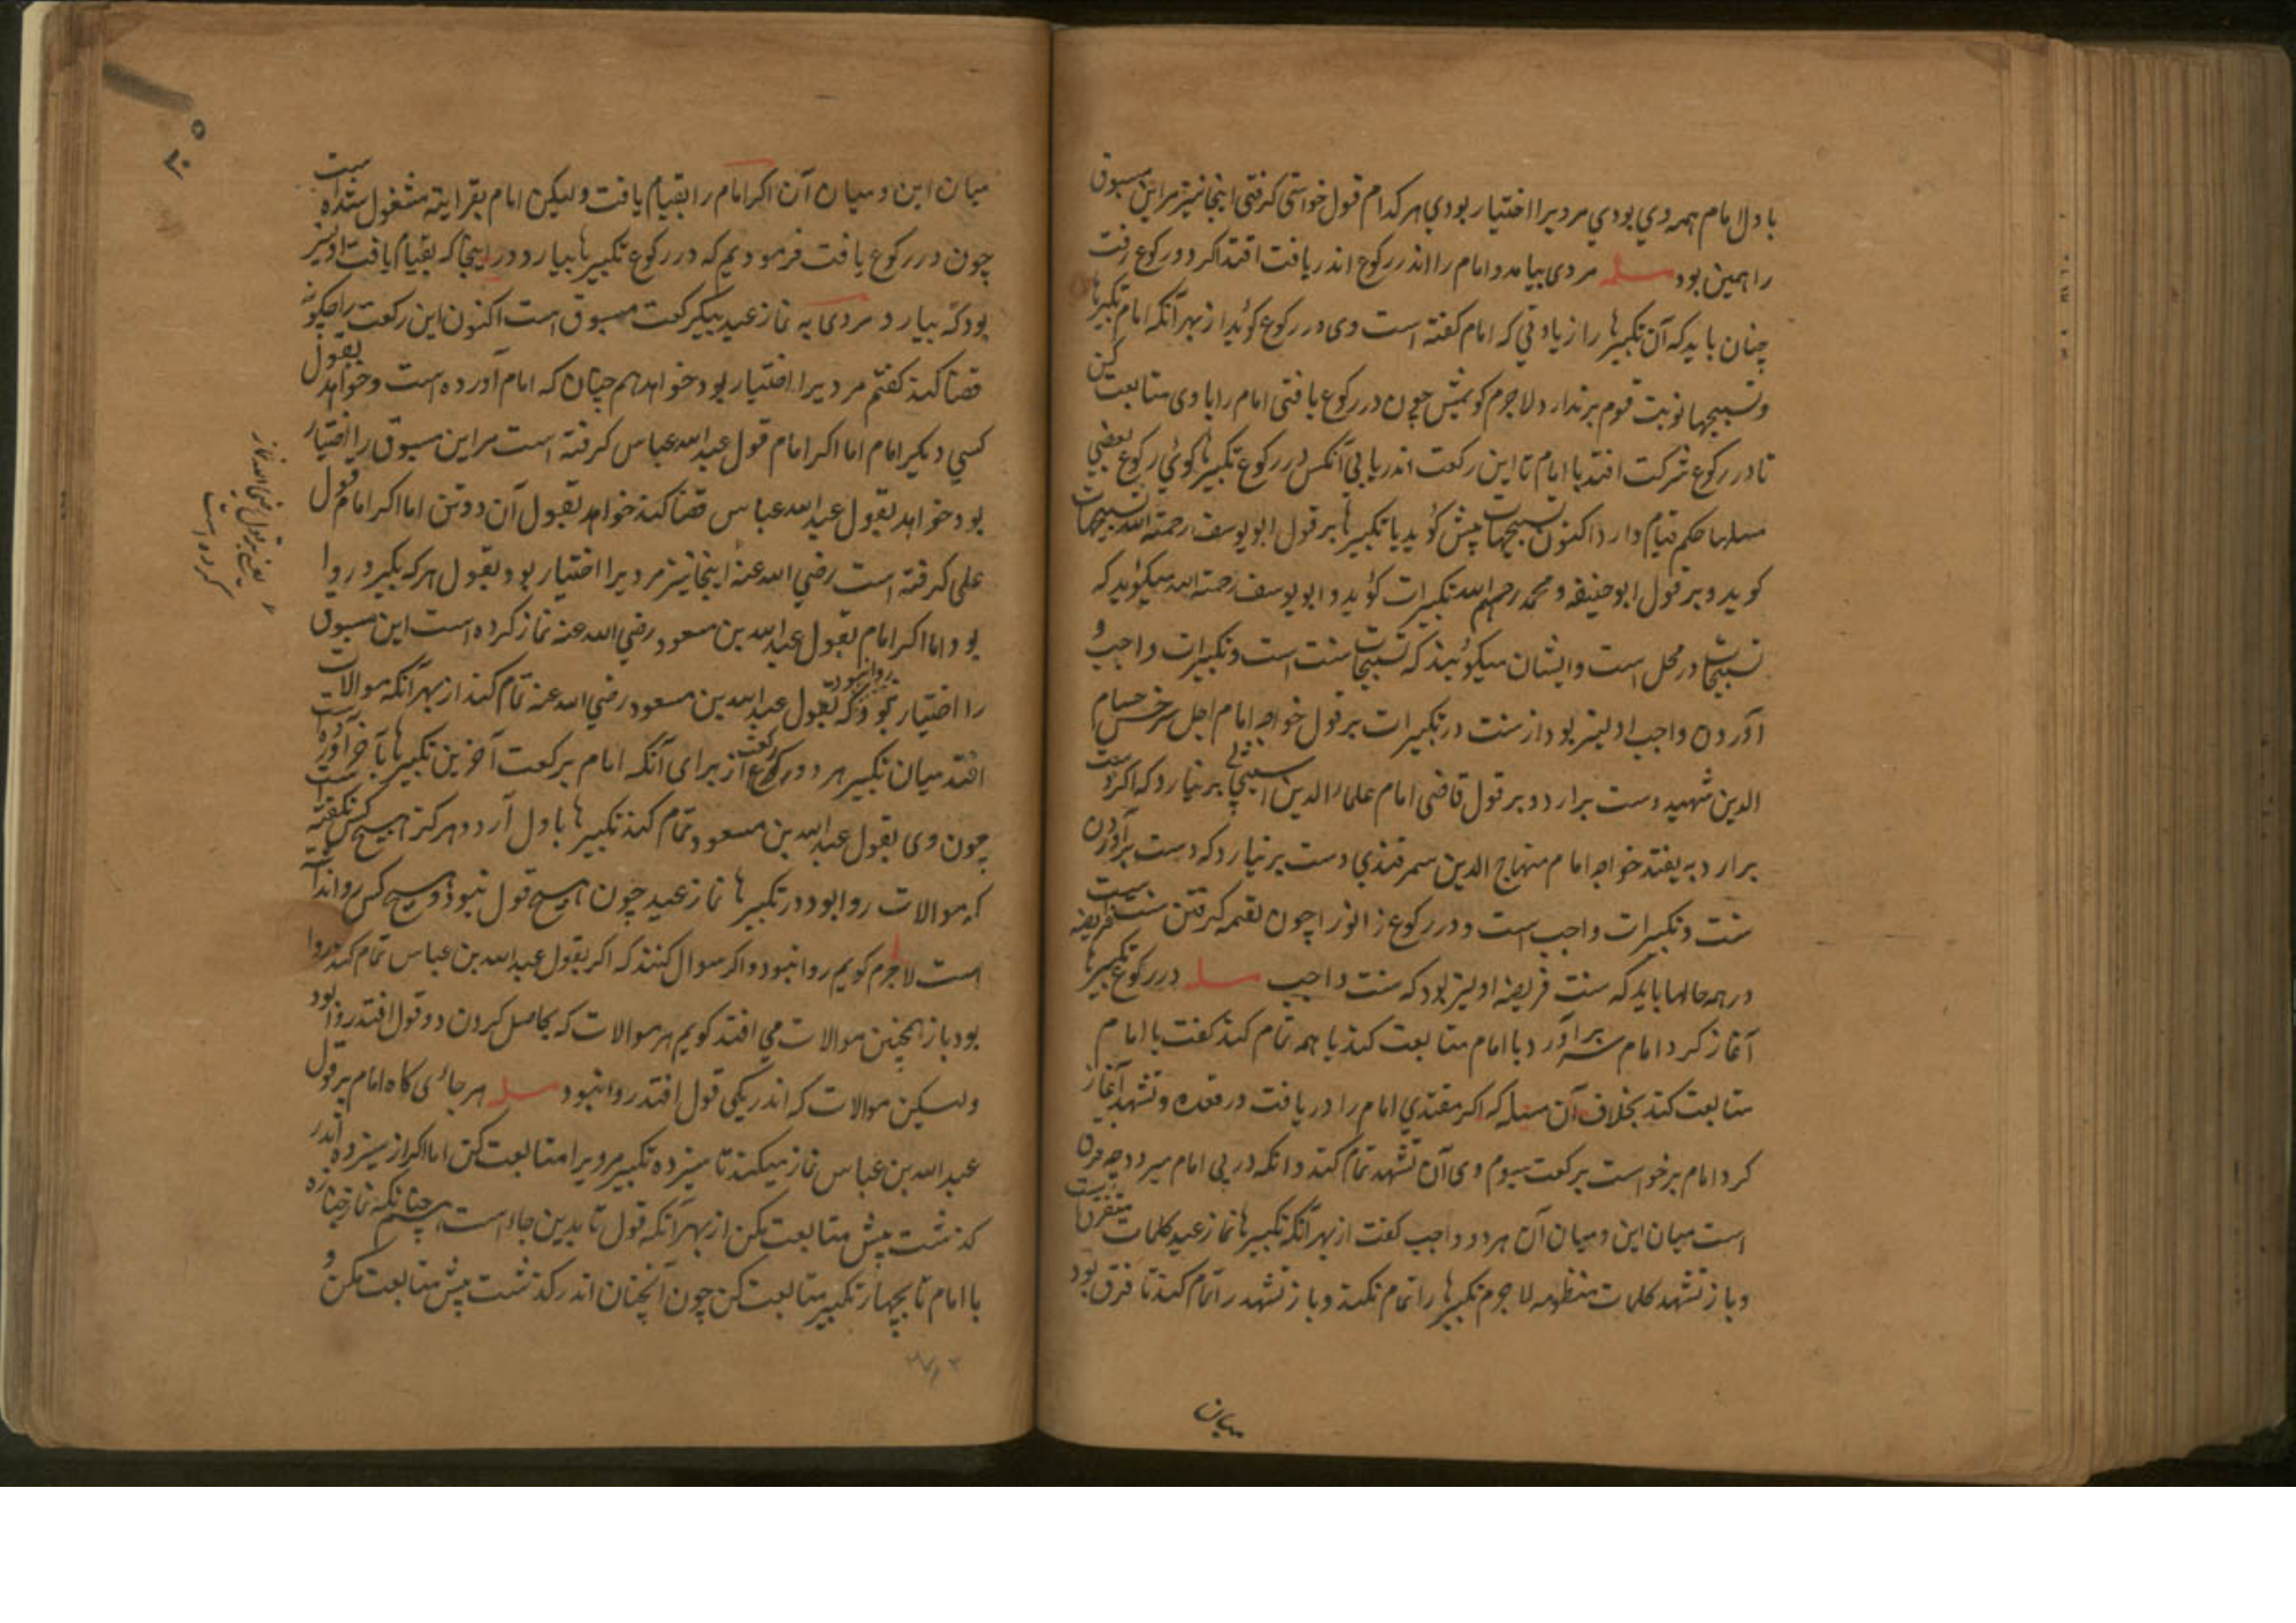 با دل امام همه وي بودي مرديرا اختيار بودي هر كدام قول خواستى كرفتى اينجا نيز مر اين مسبوق
را همين بود مسله مردى بيامد و امام را اندر ركوع اندر يافت اقتدا كرد و ركوع رفت
چنان بايد كه آن تكبيرها را زيادتي كه امام كفته است وى در ركوع كويد از بهر آنكه امام تكبيرها
و تسبيحها نوبت قوم برندارد لاجرم كوئيمش چون در ركوع يافتى امام را با وى متابعت كن
تا در ركوع شركت افتد با امام تا اين ركعت اندر يابي آنكس در ركوع تكبيرها كوئي ركوع بعضي
مسلها حكم قيام دارد اكنون تسبيحات پيش كويد يا تكبيرها بر قول ابو يوسف رحمة الله تسبيحات
كويد و بر قول ابو حنيفه و محمد رحمهم الله تكبيرات كويد و ابو يوسف رحمة الله ميكويد كه
تسبيحات در محل است و ايشان ميكويند كه تسبيحات سنت است و تكبيرات واجب و
آوردن واجب اوليتر بود از سنت در تكبيرات بر قول خواجه امام اجل سرخسى حسام
الدين شهيد دست برارد و بر قول قاضى امام علاء الدين برنيارد كه اكر دست
برارد به يفتد خواجه امام منهاج الدين سمرقندي دست برنيارد كه دست برآوردن
سنت و تكبيرات واجب است و در ركوع زانو را چون لقمه كرفتن سنت فريضه است
در همه حالها بايد كه سنت فريضه اوليتر بود كه سنت واجب مسله در ركوع تكبيرها
آغاز كرد امام سر برآورد با امام متابعت كند يا همه تمام كند كفت با امام
متابعت كند بخلاف آن مسله كه اكر مقتدي امام را در يافت در قعده و تشهد آغاز
كرد امام برخواست بركعت سيوم وى آن تشهد تمام كند و آنكه در پى امام ميرود چه فرق
است ميان اين و ميان آن هر دو واجب كفت از بهر آنكه تكبيرها نماز عيد كلمات متفرق است
و باز تشهد كلمات منظومه لاجرم تكبيرها را تمام نكند و باز تشهد را تمام كند تا فرق بود
ميان
ميان اين و ميان آن اكر امام را بقيام يافت وليكن امام بقرايت مشغول شده است
چون در ركوع يافت فرموديم كه در ركوع تكبيرها بيارد در اينجا كه بقيام يافت اوليتر
بود كه بيارد مردى به نماز عيد بيكركعت مسبوق است اكنون اين ركعت را چكونه
قضا كند كفتم مرديرا اختيار بود خواهد هم چنان كه امام آورده است و خواهد بقول
كسي ديكر امام اما اكر امام قول عبد الله عباس كرفته است مر اين مسبوق را اختيار
بود خواهد بقول عبد الله عباس قضا كند خواهد بقول آن دو تن اما اكر امام قول
على كرفته است رضي الله عنه اينجا نيز مرديرا اختيار بود بقول هر كه بكيرد روا
بود اما اكر امام بقول عبد الله بن مسعود رضي الله عنه نماز كرده است اين مسبوق
روا نبود
را اختيار نبود كه بقول عبد الله بن مسعود رضي الله عنه تمام كند از بهر آنكه موالات
افتد ميان تكبير هر دو ركعت از براى آنكه امام بركعت آخرين تكبيرها بآخر آورده است
چون وى بقول عبد الله بن مسعود تمام كند تكبيرها باول آرد و هركز هيچ كس نكفته است
كه موالات روا بود در تكبيرها نماز عيد چون هيچ قول نبود و هيچ كس روا نداشته
است لاجرم كويم روا نبود و اكر سوال كنند كه اكر بقول عبد الله بن عباس تمام كند روا
بود باز همچنين موالات مي افتد كويم هر موالات كه بحاصل كردن دو قول افتد روا بود
وليكن موالات كه اندر يكى قول افتد روا نبود مسله هر جائى كاه امام بر قول
عبد الله بن عباس نماز ميكند تا سيزده تكبير مرويرا متابعت كن اما اكر از سيزده اندر
كذشت پيش متابعت مكن از بهر آنكه قول تا بدين جاء است همچنانكه نماز جنازه
با امام تا بچهار تكبير متابعت كن چون آنچنان اندر كذشت پيش متابعت مكن و
يعني بر قول رضي الله نماز
كرده است